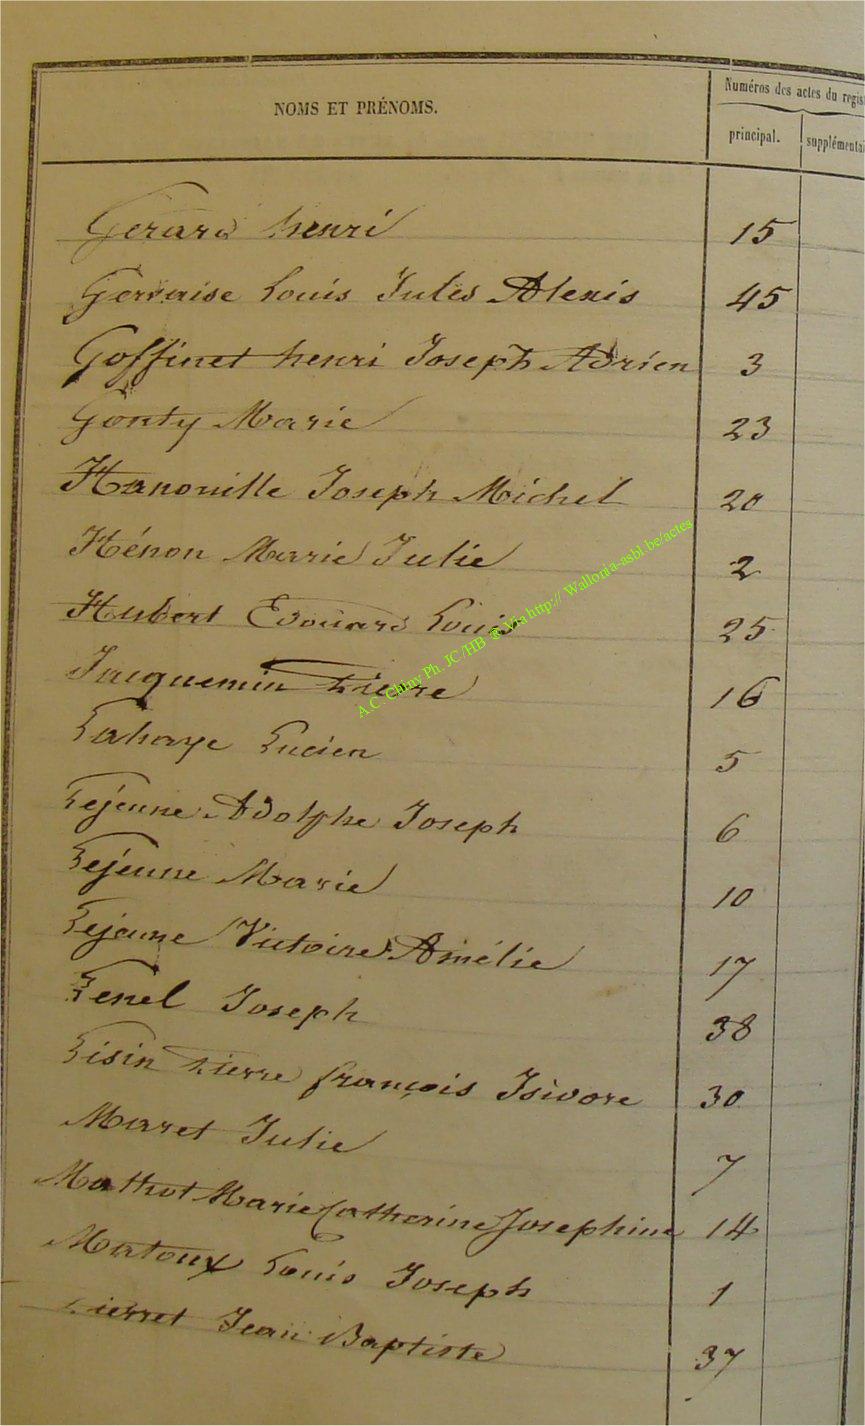 NOMS ET PRÉNOMS.
Numéros des actes du regis
principal. supplémentai
Gerard henri 15
Gervaise Louis Jules Alexis 45
Goffinet henri Joseph Adrien 3
Gonty Marie 23
Hanouille Joseph Michel 20
Hénon Marie Julie 2
Hubert Edouard Louis 25
Jacquemin Pierre 16
Lahaye Lucien 5
Lejeune Adolphe Joseph 6
Lejeune Marie 10
Lejeune Victoire Amélie 17
Lenel Joseph 38
Lisin Pierre françois Isidore 30
Maret Julie 7
Mathot Marie Catherine Josephine 14
Matoux Louis Joseph 1
Pierret Jean Baptiste 37
A.C. Chiny Ph. JC /HB ® Via http:// Wallonia-asbl.be/actes